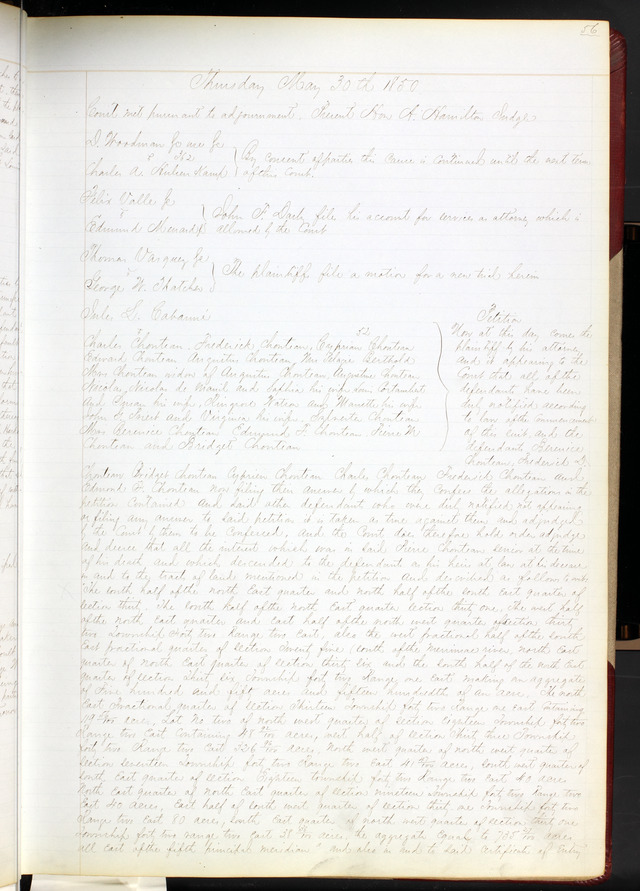 56
Thursday May 30th 1850
Court met pursuant to adjournment. Present Hon A. Hamilton Judge
D. Woodman
Charles A. } By consent of parties this cause is continued until the next term of this Court.
Felix Valle Jr
v
Edmund Menard } John F. Darby files his account for services as attorney which is allowed by the Court
Thomas
v
George W. Thatcher } The plaintiff files a motion for a new trial herein
Jule G. Cabanne
v 52
Charles Chouteau, Frederick Chouteau, Cyprian Chouteau
Edward Chouteau Augustin Chouteau, Mrs Berthold
Mrs Chouteau widow of Augustin Chouteau, Augustus Chouteau
Nicolas, Nicolas de and Sophia his wife
and his wife, and his wife
and Virginia his wife Chouteau
Mrs Berenice Chouteau Edmund F. Chouteau Pierre M
Chouteau and Bridget Chouteau
Petition
Now at this day comes the
plaintiff by his attorney
and it appearing to the
Court that all of the
defendants have been
duly notified according
to law of the commencement
of this suit and the
defendants Berenice
Chouteau, Frederick D.
Chouteau Bridget Chouteau Cyprien Chouteau Charles Chouteau Frederick Chouteau and
Edmund F. Chouteau now filing their answer by which they confess the allegations in the
petition contained and said other defendants who were duly notified not appearing
or filing any answer to said petition it is taken as true against them and adjudged
by the Court by them to be confessed, and the Court doe therefore hold order adjudge
and decree that all the interest which was in said Pierre Chouteau senior at the time
of his death and which descended to the defendants as his heirs at law at his decease
in and to the tracts of land mentioned in the petition and described as follows to wit:
The south half of the north East quarter and north half of the south East quarter of
section thirty. The south half of the north East quarter section thirty one. The west half
of the north East quarter and east half of the north west quarter of section thirty
two Township forty two Range two East, also the west fractional half of the south
East fractional quarter of section twenty five south of the Merimac river, north East
quarter of north East quarter of section thirty six and the south half of the north East
quarter of section thirty six Township forty two Range one East making an aggregate
of Five hundred and fifty acres and fifteen hundredth of an acre, The north
East fractional quarter of section thirteen Township forty two Range one East containing
acres, Lot No two of north west quarter of section eighteen Township forty two
Range two East containing acres, west half of section thirty three Township
forty two Range two East 326 acres. North west quarter of north west quarter of
section seventeen Township forty two Range two East 41 acres, south west quarter of
south East quarter of section Eighteen township forty two Range two East 40 acres
North East quarter of north East quarter of section nineteen township forty two Range two
East 40 acres, East half of south west quarter of section thirty one township forty two
Range two East 80 acres, south East quarter of north west quarter of section thirty one
township forty two range two East 38 acres, the aggregate equal to 785 acres
all East of the fifth principal meridian and also in and to said certificate of Entry